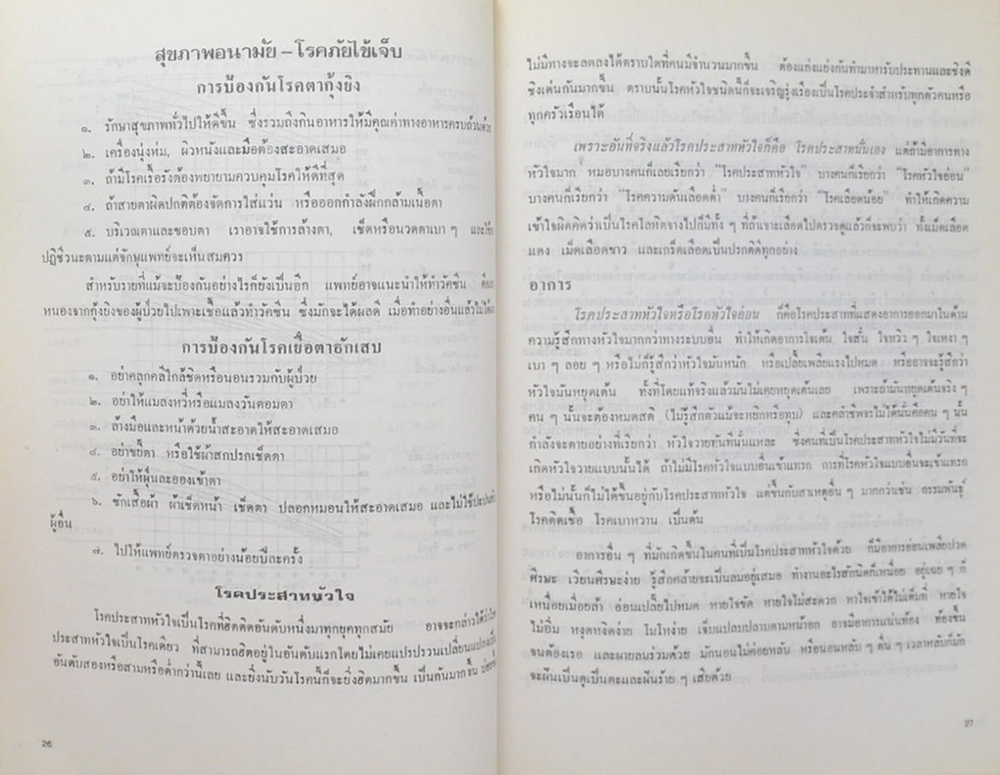 สุขภาพอนามัย – โรคภัยไข้เจ็บ
การป้องกันโรคตากุ้งยิง
๑. รักษาสุขภาพทั่วไปให้ดีขึ้น ซึ่งรวมถึงกินอาหารให้มีคุณค่าทางอาหารครบถ้วนด้วย
๒. เครื่องนุ่งห่ม, ผิวหนังและมือต้องสะอาดเสมอ
๓. ถ้ามีโรคเรื้อรังต้องพยายามควบคุมโรคให้ดีที่สุด
๔. ถ้าสายตาผิดปกติต้องจัดการใส่แว่น หรือออกกำลังฝึกกล้ามเนื้อตา
๕. บริเวณตาและขอบตา เราอาจใช้การล้างตา, เช็ดหรือนวดตาเบา ๆ และใช้ยา
ปฏิชีวนะตามแต่จักษุแพทย์จะเห็นสมควร
สำหรับรายที่แม้จะป้องกันอย่างไรก็ยังเป็นอีก แพทย์อาจแนะนำให้ทำวัคซีน
หนองจากกุ้งยิงของผู้ป่วยไปเพาะเชื้อแล้วทำวัคซีน ซึ่งมักจะได้ผลดี เมื่อทำอย่างอื่นแล้วไม่ได้ผล
การป้องกันโรคเยื่อตาอักเสบ
๑. อย่าคลุกคลีใกล้ชิดหรือนอนรวมกับผู้ป่วย
๒. อย่าให้แมลงหวี่หรือแมลงวันตอมตา
๓. ล้างมือและหน้าด้วยน้ำสะอาดให้สะอาดเสมอ
๔. อย่าขยี้ตา หรือใช้ผ้าสกปรกเช็ดตา
๕. อย่าให้ฝุ่นละอองเข้าตา
๖. ซักเสื้อผ้า ผ้าเช็ดหน้า เช็ดตา ปลอกหมอนให้สะอาดเสมอ และไม่ใช้ปะปนกับ
ผู้อื่น
๗. ไปให้แพทย์ตรวจตาอย่างน้อยปีละครั้ง
โรคประสาทหัวใจ
โรคประสาทหัวใจเป็นโรคที่ฮิตติดอันดับหนึ่งมาทุกยุคทุกสมัย อาจจะกล่าวได้ว่าโรค
ประสาทหัวใจเป็นโรคเดียว ที่สามารถฮิตอยู่ในอันดับแรกโดยไม่เคยแปรปรวนเปลี่ยนแปลงเป็น
อันดับสองหรือสามหรือต่ำกว่านั้นเลย และยิ่งนับวันโรคนี้ก็จะยิ่งฮิตมากขึ้น เป็นกันมากขึ้น
26
ไม่มีทางจะลดลงได้ตราบใดที่คนมีจำนวนมากขึ้น ต้องแก่งแย่งกันทำมาหารับประทานและชิงดี
ชิงเด่นกันมากขึ้น ตราบนั้นโรคหัวใจชนิดนี้ก็จะเจริญรุ่งเรืองเป็นโรคประจำสำหรับทุกตัวคนหรือ
ทุกครัวเรือนได้
เพราะอันที่จริงแล้วโรคประสาทหัวใจก็คือ โรคประสาทนั่นเอง แต่ถ้ามีอาการทาง
หัวใจมาก หมอบางคนก็เลยเรียกว่า "โรคประสาทหัวใจ" บางคนก็เรียกว่า "โรคหัวใจอ่อน"
บางคนก็เรียกว่า "โรคความดันเลือดต่ำ" บางคนก็เรียกว่า "โรคเลือดน้อย" ทำให้เกิดความ
เข้าใจผิดคิดว่าเป็นโรคโลหิตจางไปก็มีทั้ง ๆ ที่ถ้าเจาะเลือดไปตรวจดูแล้วก็จะพบว่า ทั้งเม็ดเลือด
แดง เม็ดเลือดขาว และเกร็ดเลือดเป็นปรกติดีทุกอย่าง
อาการ
โรคประสาทหัวใจหรือโรคหัวใจอ่อน ก็คือโรคประสาทที่แสดงอาการออกมาในด้าน
ความรู้สึกทางหัวใจมากกว่าทางระบบอื่น ทำให้เกิดอาการใจเต้น ใจสั่น ใจหวิว ๆ ใจเหงา ๆ
เบา ๆ ลอย ๆ หรือไม่ก็รู้สึกว่าหัวใจมันหนัก หรือเปลี้ยเพลียแรงไปหมด หรืออาจจะรู้สึกว่า
หัวใจมันหยุดเต้น ทั้งที่โดยแท้จริงแล้วมันไม่เคยหยุดเต้นเลย เพราะถ้ามันหยุดเต้นจริง ๆ
คน ๆ นั้นจะต้องหมดสติ (ไม่รู้สึกตัวแม้จะหยิกหรือทุบ) และคลำชีพจรไม่ได้นั่นคือคน ๆ นั้น
กำลังจะตายอย่างที่เรียกว่า หัวใจวายทันทีนั่นแหละ ซึ่งคนที่เป็นโรคประสาทหัวใจไม่มีวันที่จะ
เกิดหัวใจวายแบบนั้นได้ ถ้าไม่มีโรคหัวใจแบบอื่นเข้าแทรก การที่โรคหัวใจแบบอื่นจะเข้าแทรก
หรือไม่นั้นก็ไม่ได้ขึ้นอยู่กับโรคประสาทหัวใจ แต่ขึ้นกับสาเหตุอื่น ๆ มากกว่าเช่น กรรมพันธุ์
โรคติดเชื้อ โรคเบาหวาน เป็นต้น
อาการอื่น ๆ ที่มักเกิดขึ้นในคนที่เป็นโรคประสาทหัวใจด้วย ก็มีอาการอ่อนเพลียปวด
ศีรษะ เวียนศีรษะง่าย รู้สึกคล้ายจะเป็นลมอยู่เสมอ ทำงานอะไรสักนิดก็เหนื่อย อยู่เฉย ๆ ก็
เหนื่อยเมื่อยล้า อ่อนเปลี้ยไปหมด หายใจขัด หายใจไม่สะดวก หาใจเข้าได้ไม่เต็มที่ หายใจ
ไม่อิ่ม หงุดหงิดง่าย โมโหง่าย เจ็บแปลบปลาบตามหน้าอก อาจมีอาการแน่นท้อง ท้องขึ้น
จนต้องเรอ และผายลมร่วมด้วย มักนอนไม่ค่อยหลับ หรือนอนหลับ ๆ ตื่น ๆ เวลาหลับก็มัก
จะฝันเป็นตุเป็นตะและฝันร้าย ๆ เสียด้วย
27